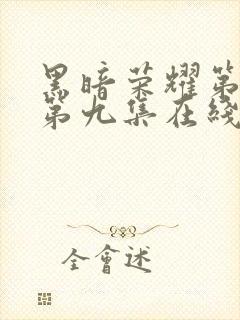 黑暗荣耀第
第九集在线
全會述